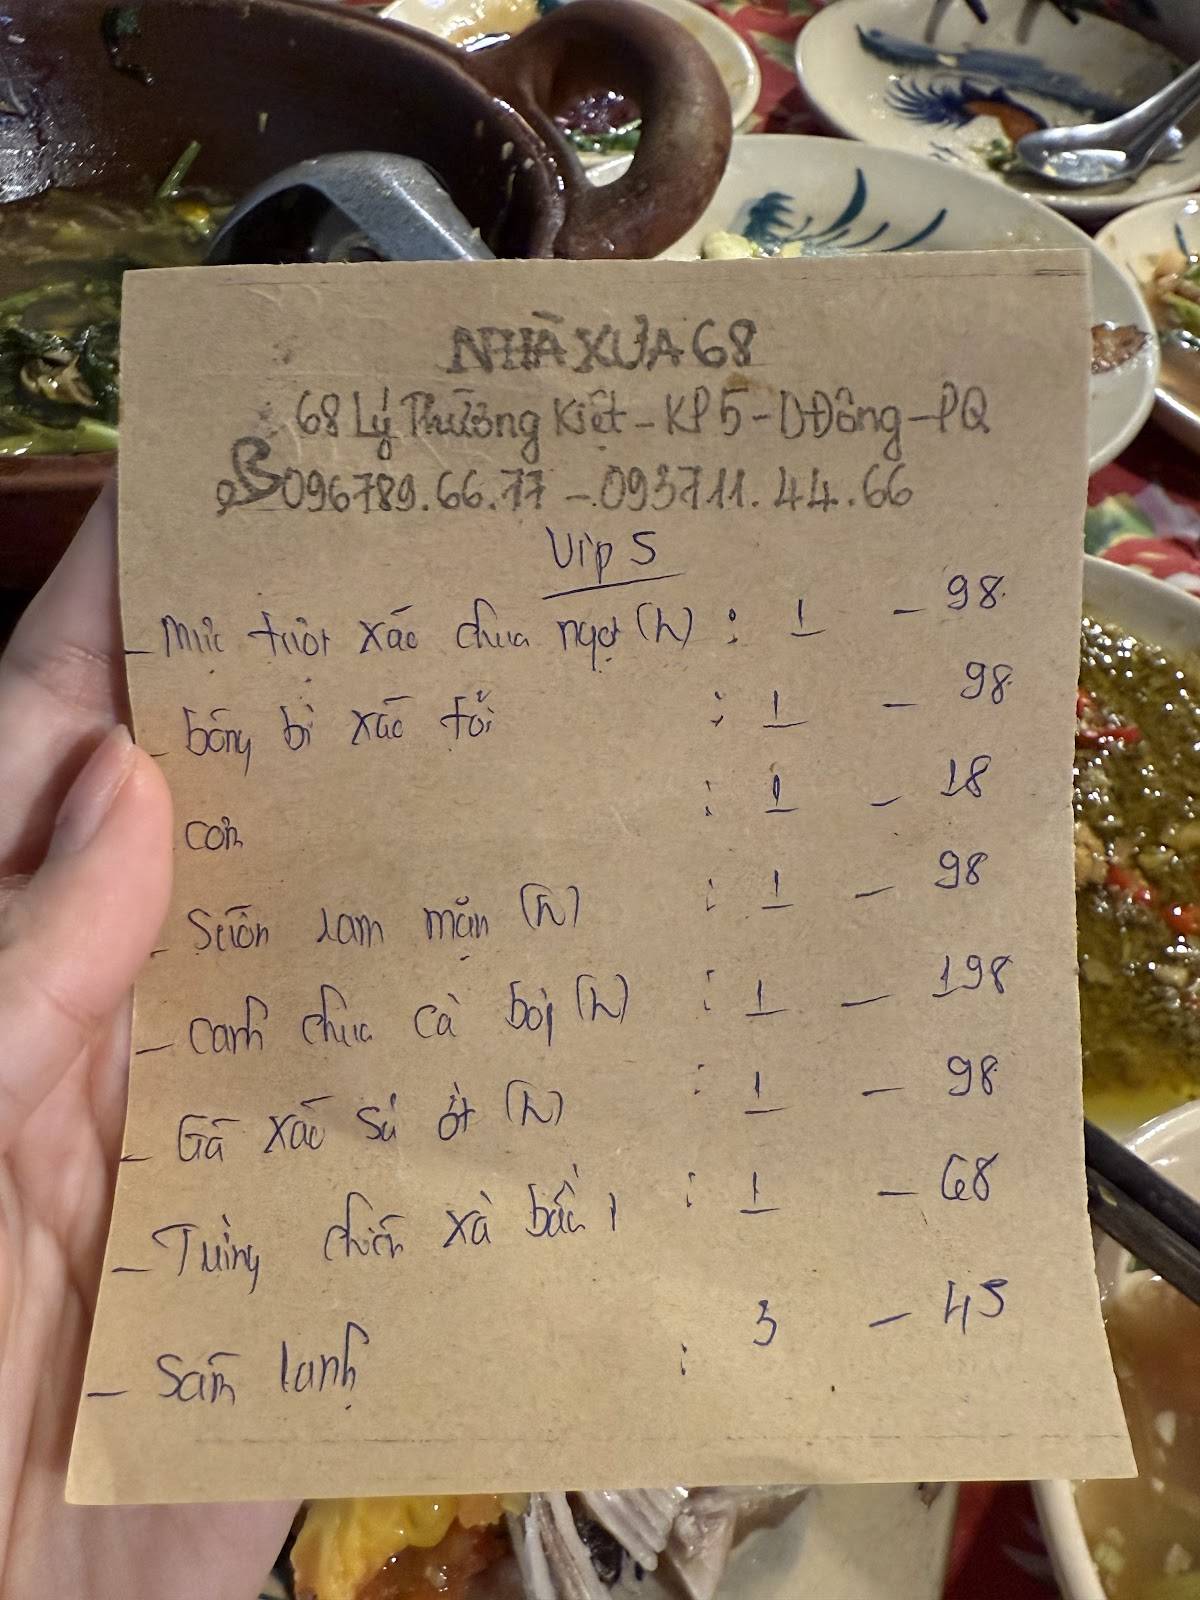 NHÀ XƯA 68
68 Lý Thường Kiệt - KP5 - DĐông - PQ
096789.66.77 - 093711.44.66
Vip 5
- Mực trột xào chua ngọt (L) : 1 - 98
- bông bí xào tỏi : 1 - 98
cơm : 1 - 18
- Sườn ram mặn (L) : 1 - 98
- canh chua cá bớp (L) : 1 - 198
- Gà xào sả ớt (L) : 1 - 98
- Trứng chiên xà bần : 1 - 68
- Sâm lạnh : 3 - 45